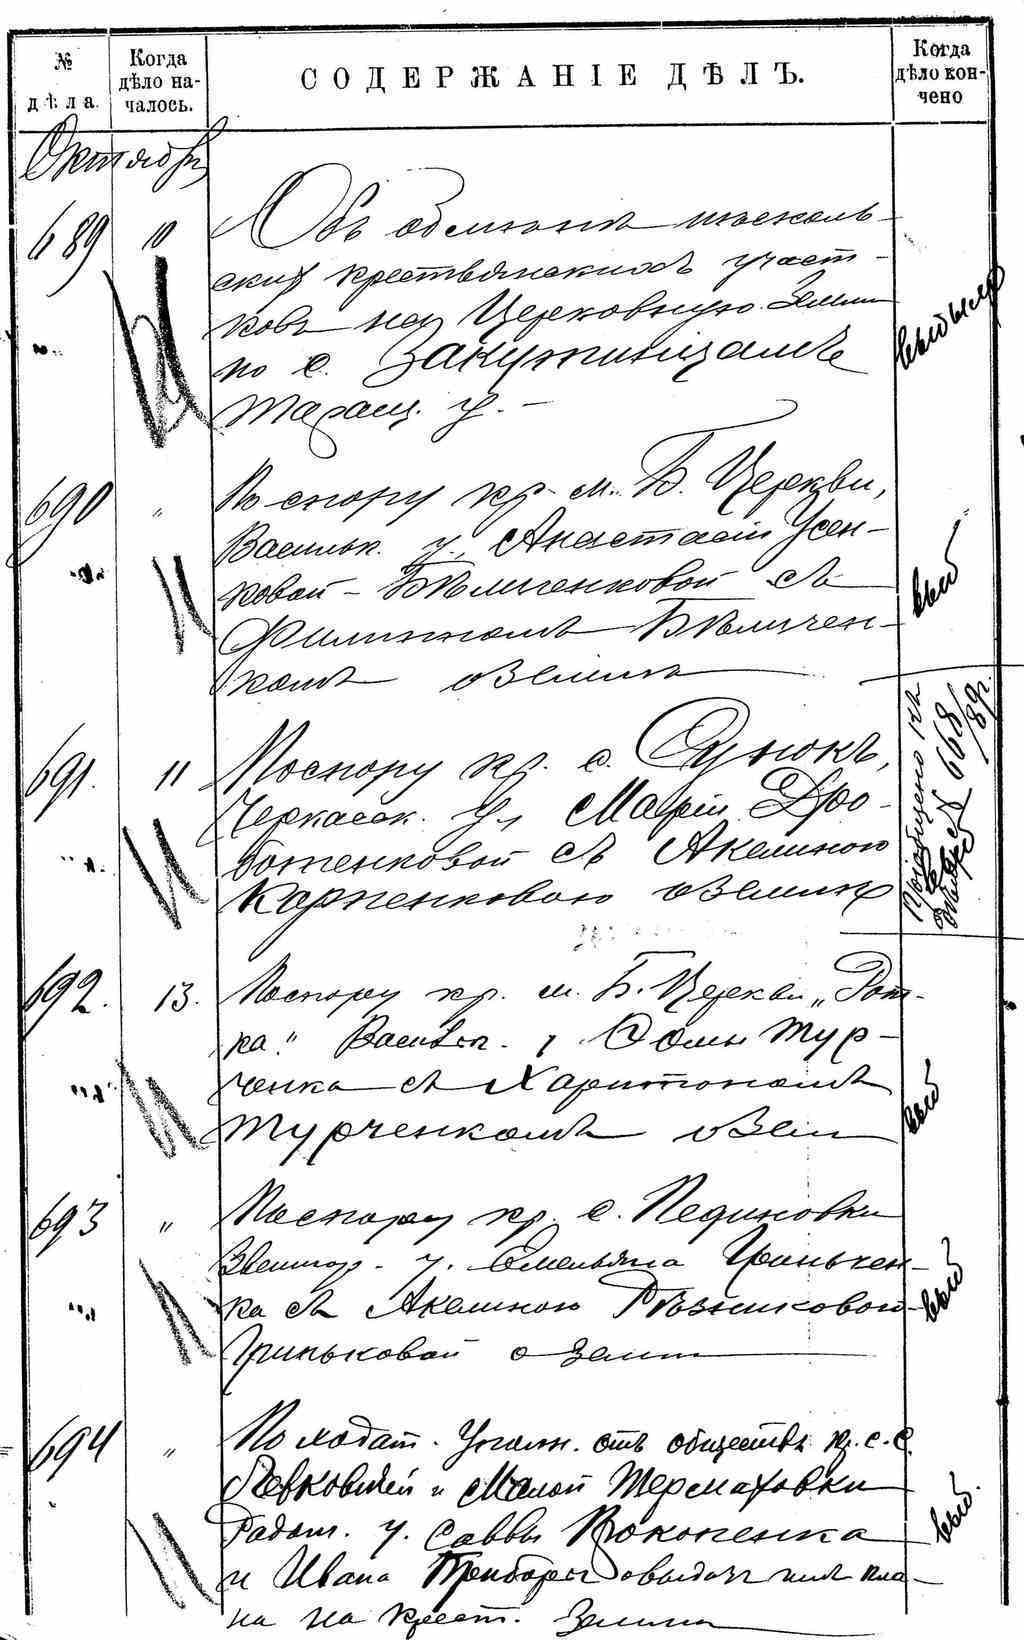 № дѣла.
Когда дѣло началось.
СОДЕРЖАНІЕ ДѢЛЪ.
Когда дѣло кончено
Октябрь
689 10 Объ обмѣнѣ
скихъ крестьянскихъ участ-
ковъ на Церковную землю
по с. Закутинцамъ
Таращ. у. –
выбыло
690 " По спору кр. м. Б. Церкви,
Васильк. у., Анастасіи Усен-
ковой - Бѣличенковой съ
Филиппомъ Бѣличен-
комъ о землѣ
выб
691. 11 По спору кр. с. Сунокъ,
Черкасск. у. Маріи Дро-
ботенковой съ Акелиною
Карпенковою о землѣ
Пріобщено къ № 668/89 г.
692. 13. По спору кр. м. Б. Церкви „Рот-
ка." Васильк. у. Ѳомы Тур-
ченка съ Харитономъ
Турченкомъ о земл
выб
693 " По спору кр. с. Пединовки
Звениг. у. Емельяна Гриньчен-
ка съ Акелиною Рѣзниковой-
Гриньковой о земл
выб
694 " По ходат. Уполн. отъ обществъ кр. с. с.
и Малой Термаховки
Радом. у. Саввы Прокопенка
и Ивана о выдачѣ имъ пла-
на на крест. землю
выб.